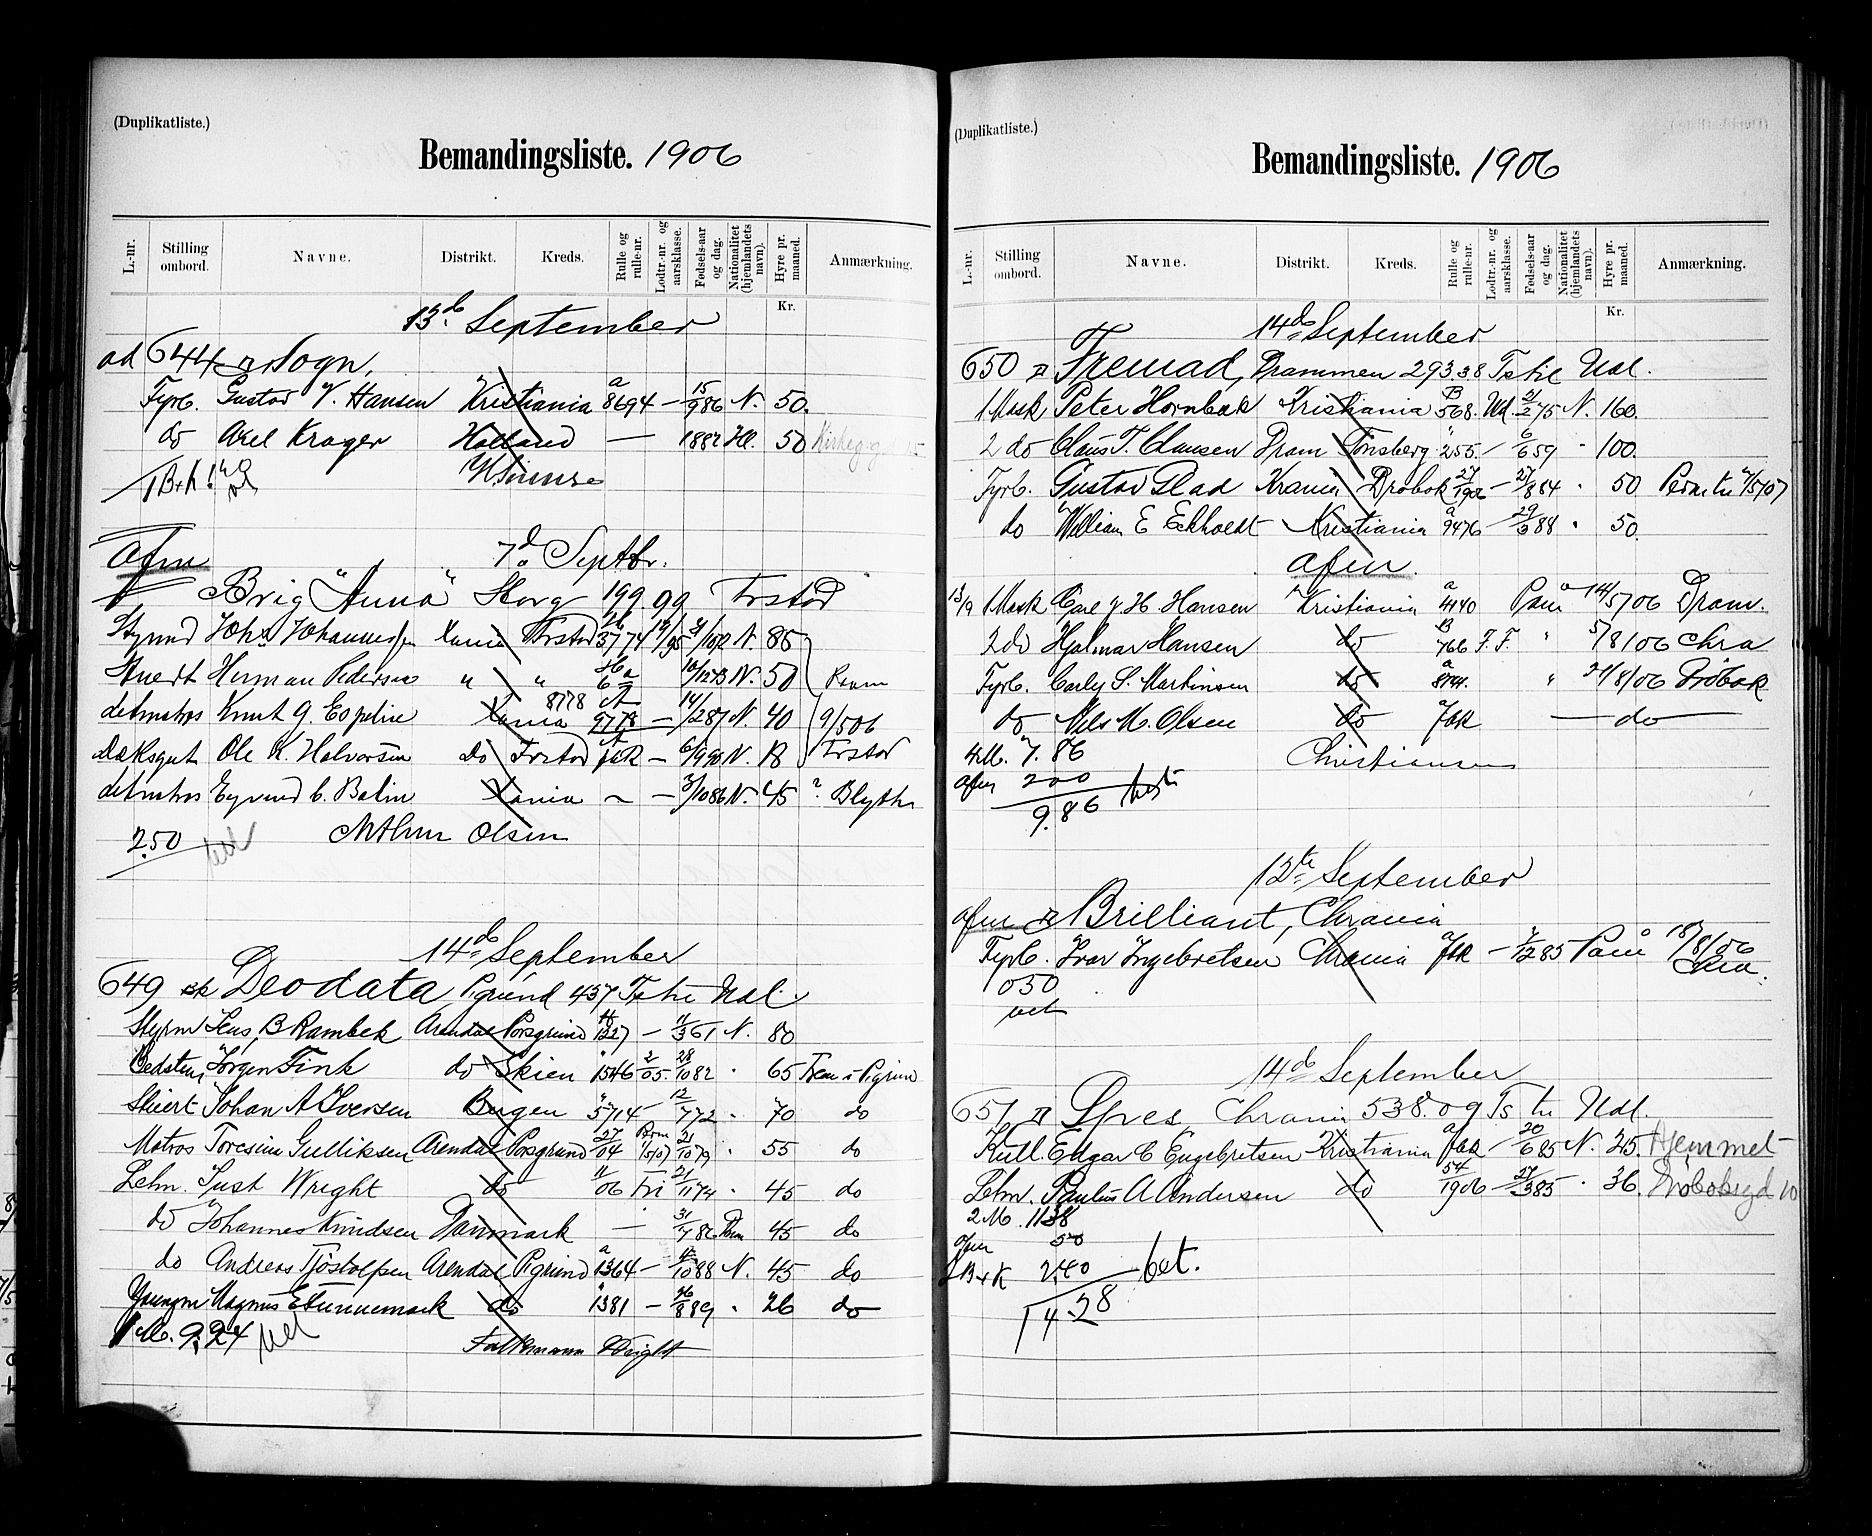 (Duplikatliste.)
Bemandingsliste. 1906
L.-nr. Stilling ombord. Navne. Distrikt. Kreds. Rulle og rulle-nr. Lodtr.-nr. og aarsklasse. Fødsels-aar og dag. Nationalitet (hjemlandets navn). Hyre pr. maaned. Anmærkning.
Kr.
13de September
ad 644 Sogn,
Fyrb. Gustav V. Hansen Kristiania a 8694 — 15/9 86 N. 50.
do Axel Krager Holland — 1882 Hl. 50
1 B+K
Afm 7d Septbr.
Brig "Anna" 199,99 Frstad
Styrmd Johs Johannessen Xania Frstad 3774 N. 85
Stuert Herman Pedersen " " 10/12 73 N. 50
8778
detmatros Knut G. Xania 9778 — 14/2 87 N. 40 9/5 06
Dæksgut Ole K. Halvorsen do Frstad fbk — 6/9 90 N. 18 Frstad
detmatros Eyvind C. Balin Xania — — 3/10 86 N. 45 ? Blyth
2.50 Olsen
14de September
649 sk Deodata Pgrund 457 Ts til Udl.
Styrm Jens B Rambek Arendal Porsgrund 1227 — 11/3 61 N. 80
Bedstem Jørgen Fink do Skien 1546 2/05. 28/10 82 . 65 Frem i Pgrund
Stuert Johan A Iversen Bergen 5714 — 12/7 72 . 70 do
Matros Toresius Gulliksen Arendal Porsgrund 27/04 21/10 79 . 55 do
Letm. Just Wright do 11/06 fri 21/11 74 . 45 do
do Johannes Knudsen Danmark — 31/7 82 Dan 45 do
do Andreas Tjøstolfsen Arendal Pgrund a 1364 — 10 88 N. 45 do
Youngm Magnus E Sunnemark do 1381 — 26/8 89 . 26 do
1 M. 9.24 bet Falkmann Wright
(Duplikatliste.)
Bemandingsliste. 1906
L.-nr. Stilling ombord. Navne. Distrikt. Kreds. Rulle og rulle-nr. Lodtr.-nr. og aarsklasse. Fødsels-aar og dag. Nationalitet (hjemlandets navn). Hyre pr. maaned. Anmærkning.
Kr.
14de September
650 Fremad, Drammen 293.38 Ts til Udl.
1 Mask Peter Hornbæk Kristiania B 568. Ud. 21/2 75 N. 160.
2 do Claus T. Clausen Dram Tønsberg 255. — 6/6 59 . 100.
Fyrb. Gustav Glad Xrania Drøbak 27/1906 — 27/8 84 . 50
do William E Eckholdt Kristiania a 9476 — 29/9 88 . 50.
afm.
13/9 1 Mask Carl J. H. Hansen Kristiania a 4140 Paam 14/5 06 Dram.
2 do Hjalmar Hansen do B 766 F. F. " 5/8 06 Chra
Fyrb. Carly S. Martinsen do " 21/8/06 Drøbak
do Nils M. Olsen do fbk — do —
4 M. 7.86 Christiansen
afm 200
9.86 bet
12te September
afm Brilliant, Chrania
Fyrb. Ivar Ingebretsen Chrania fbk — 7/12 85 Paam 18/8/06
050 Chra.
bet
14de September
651 Spes, Chrania 538.09 Ts til Udl.
Kull. Edgar C Engebretsen Kristiania a fbk — 20/6 85 N. 25. Hjemmet
Letm. Paulus A Andersen do 54/1906 — 27/3 85 . 36.
2 M. 11.38
Afm 50
B+K 2.40 bet.
14.28